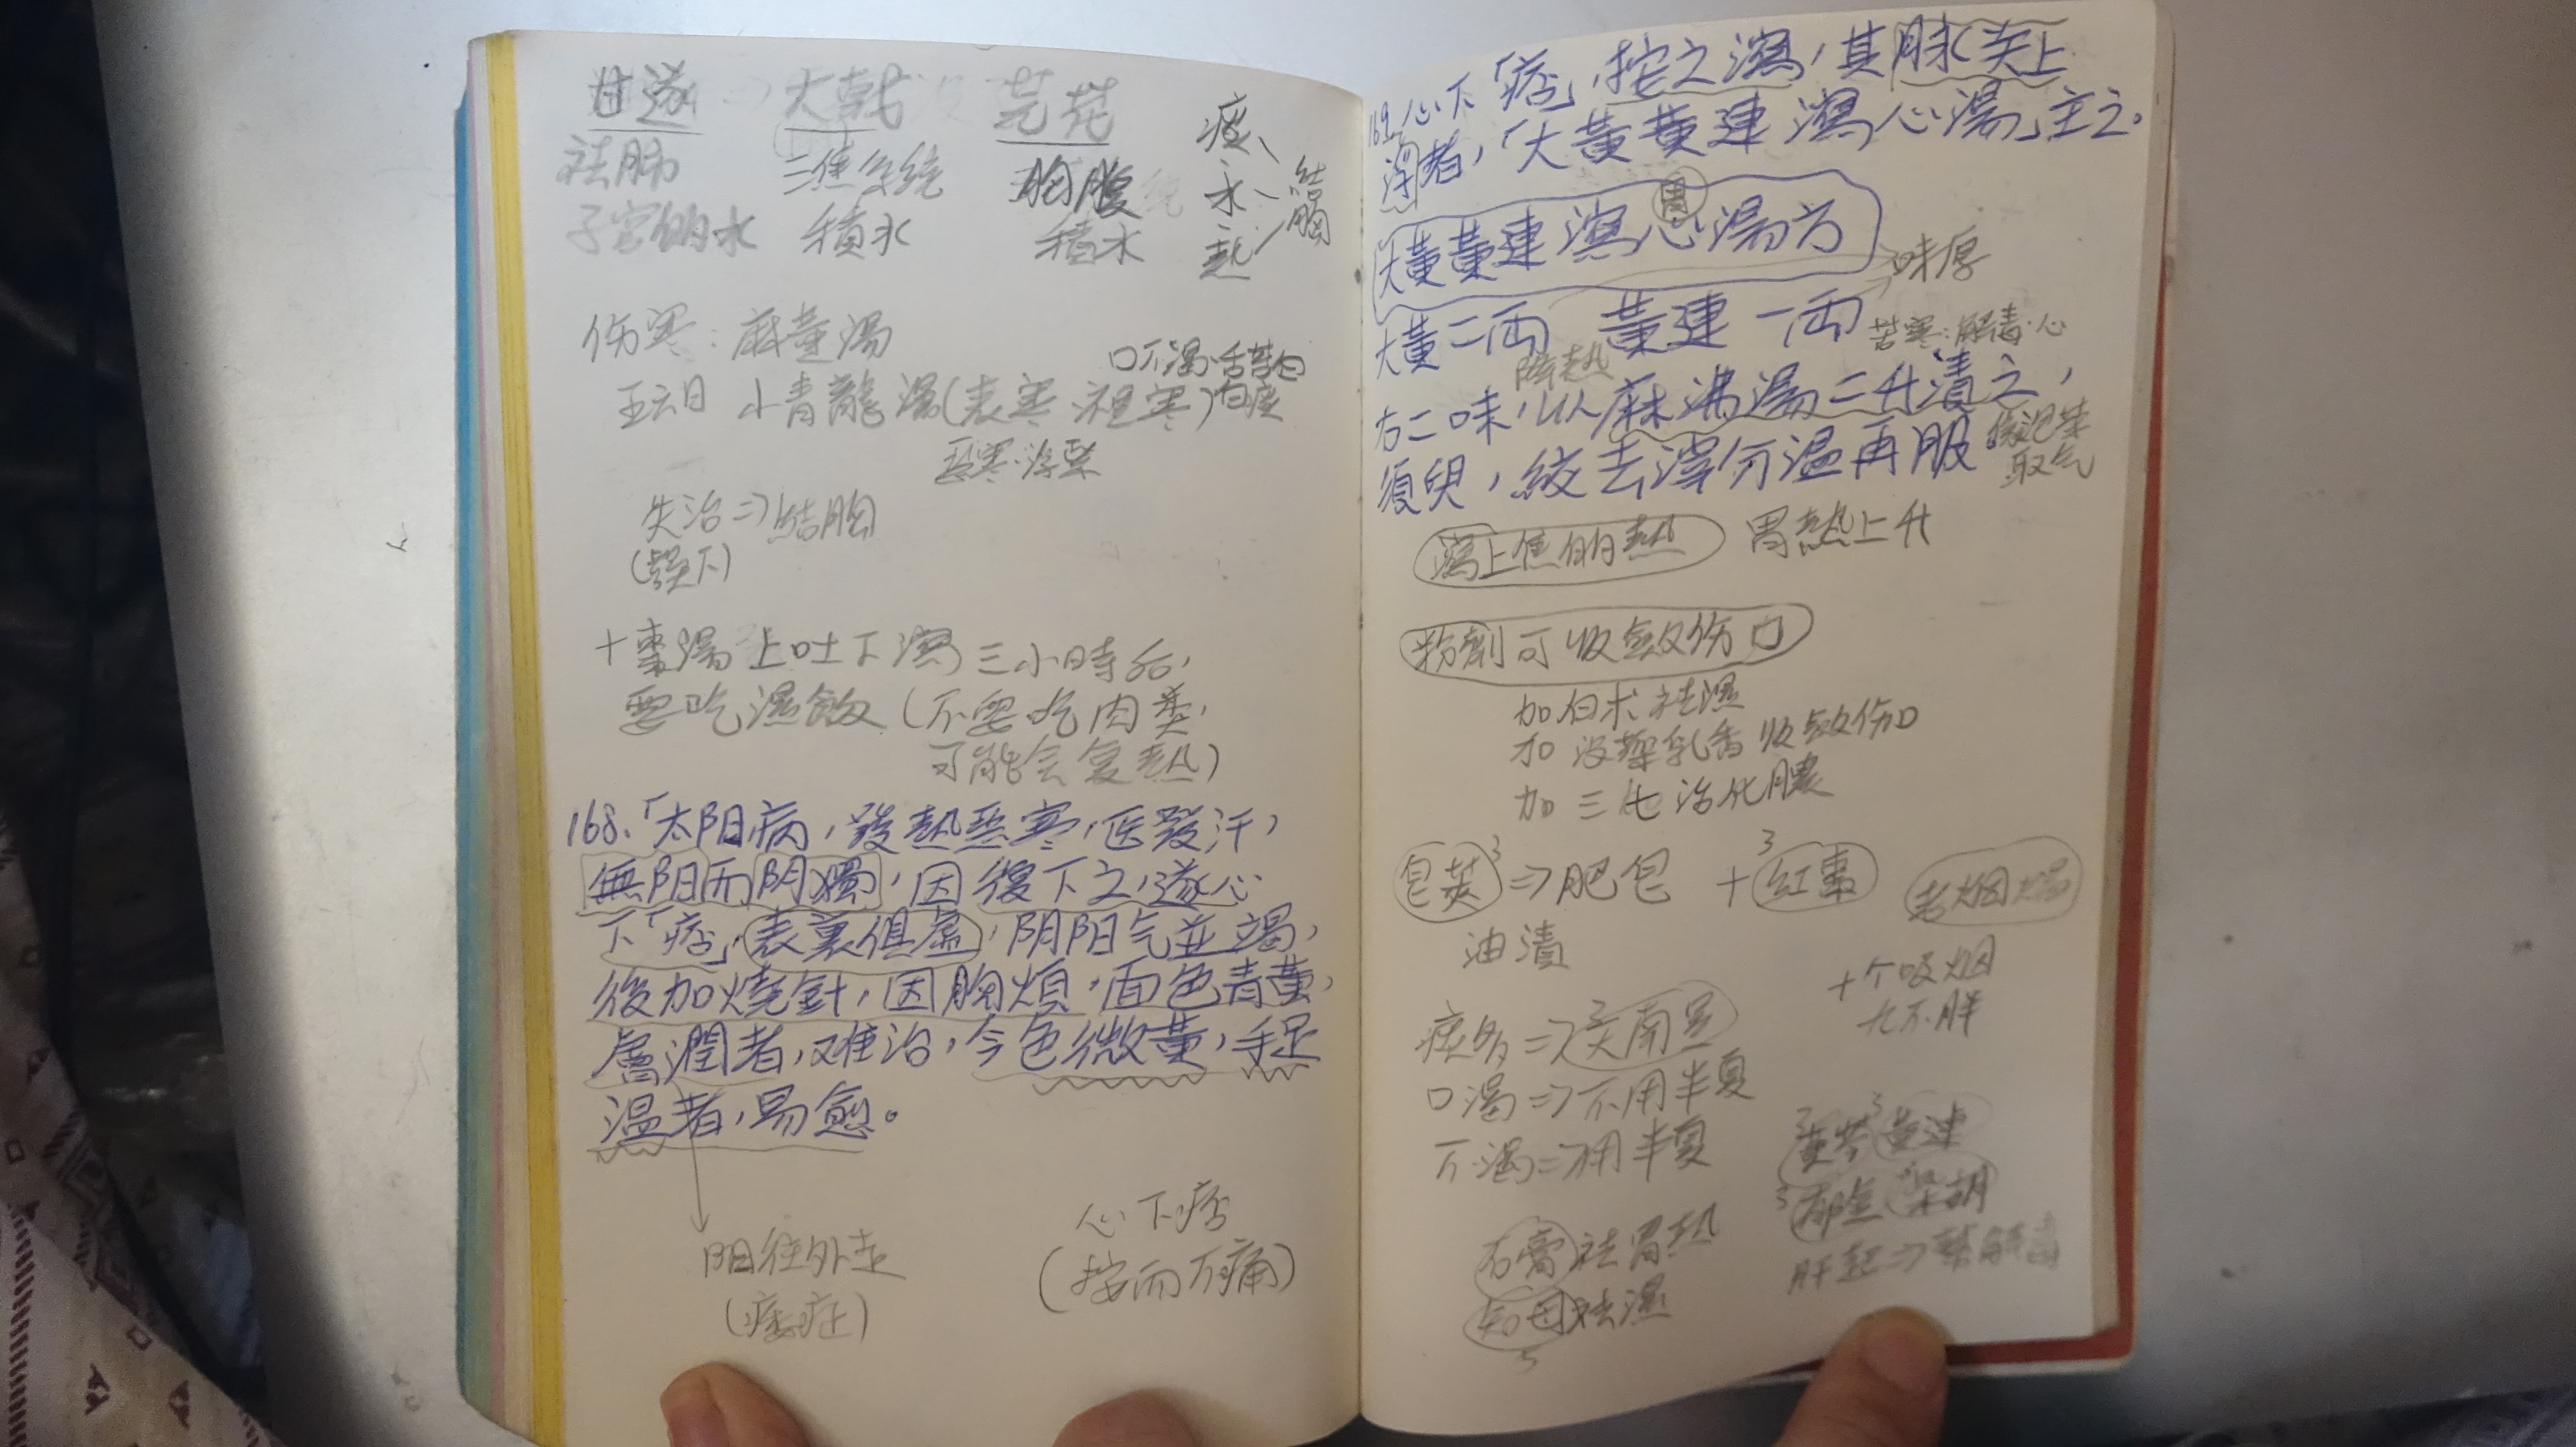 甘遂 ⇒ 大戟 芫花
祛肺 三焦系统 胸腹
子宫的水 積水 積水
痰、水、熱 結胸
伤寒：麻黄湯
口不渴·舌苔白
五六日 小青龍湯(表寒裡寒)白痰
恶寒·浮緊
失治⇒結胸
(誤下)
十棗湯 上吐下瀉 三小時后，
要吃濕飯 (不要吃肉類，
可能会复熱)
168、「太阳病，發熱恶寒，医發汗，
無阳而阴獨，因復下之，遂心
下「痞」，表裏俱虛，阴阳气並竭，
後加燒針，因胸煩，面色青黄，
膚潤者，难治，今色微黄，手足
溫者，易愈。
阳往外走
(痿症)
心下痞
(按而不痛)
169、心下「痞」，按之濡，其脉关上
浮者，「大黄黄連瀉心湯」主之。
胃
大黄黄連瀉心湯方
味厚
大黄二両 黄連一両
降熱 苦寒：解毒·心
右二味，以麻沸湯二升漬之，
須臾，絞去滓分温再服。
像泡茶
取气
瀉上焦的熱 胃熱上升
粉劑可收斂伤口
加白术祛濕
加没藥乳香收斂伤口
加三七治化膿
皂莢3⇒肥皂 +3紅棗
油漬
十个吸烟
九不胖
痰多⇒2天南星
口渴⇒不用半夏
不渴⇒用半夏
2黄芩3黄連
3郁金 柴胡
石膏祛胃熱
知母祛濕
5